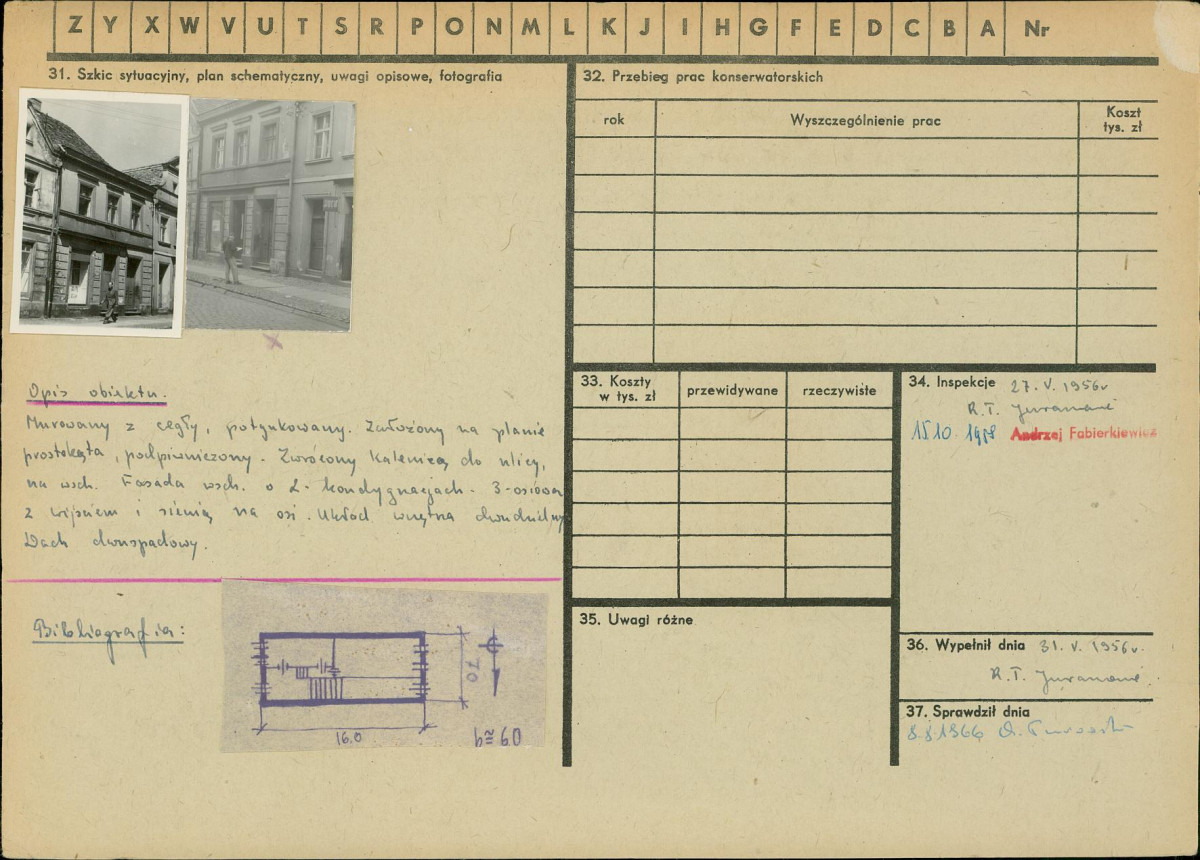 Z Y X W V U T S R P O N M L K J I H G F E D C B A Nr
31. Szkic sytuacyjny, plan schematyczny, uwagi opisowe, fotografia
Opis obiektu.
Murowany z cegły, potynkowany. Założony na planie
prostokąta, podpiwniczony. Zwrócony kalenicą do ulicy,
na wsch. Fasada wsch. o 2-kondygnacjach. 3-osiowa
z wejściem i sienią na osi. Układ wnętrza dwudzielny
Dach dwuspadowy.
Bibliografia:
70
16.0
h≅60
32. Przebieg prac konserwatorskich
rok
Wyszczególnienie prac
Koszt
tys. zł
33. Koszty
w tys. zł
przewidywane
rzeczywiste
34. Inspekcje 27. V. 1956r
R.T.
15.10. 1978 Andrzej Fabierkiewicz
35. Uwagi różne
36. Wypełnił dnia 31. V. 1956r.
R.T.
37. Sprawdził dnia
8.8.1966